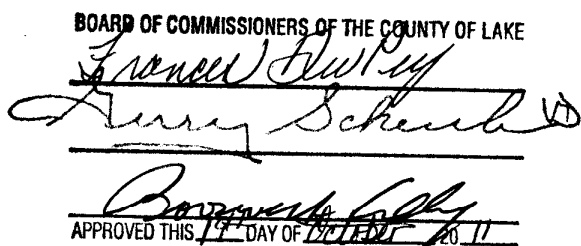 BOARD OF COMMISSIONERS OF THE COUNTY OF LAKE
Frances DuPey
Gerry Scheub
APPROVED THIS 19th DAY OF October 20 11